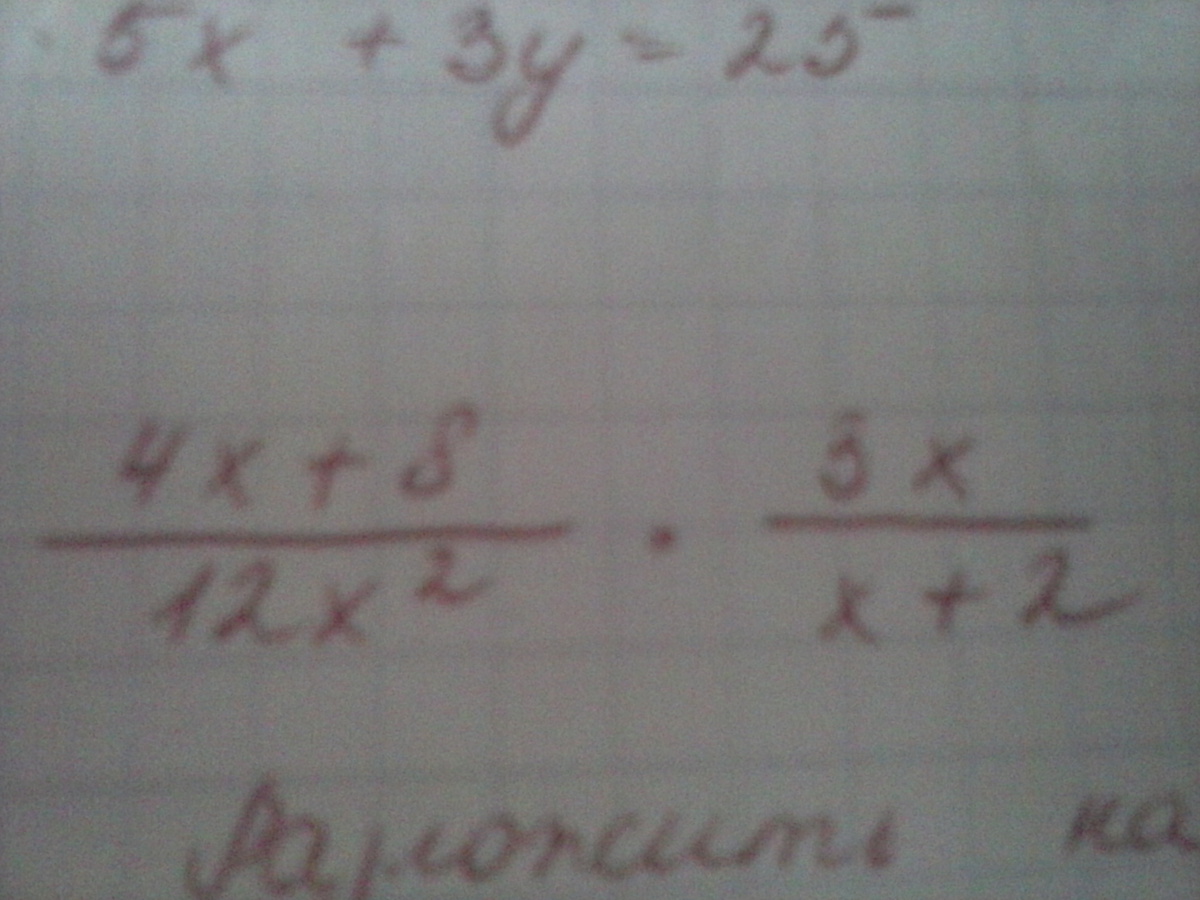 5x + 3y = 25
4x + 8
12x²
·
3x
x + 2
Разложить на